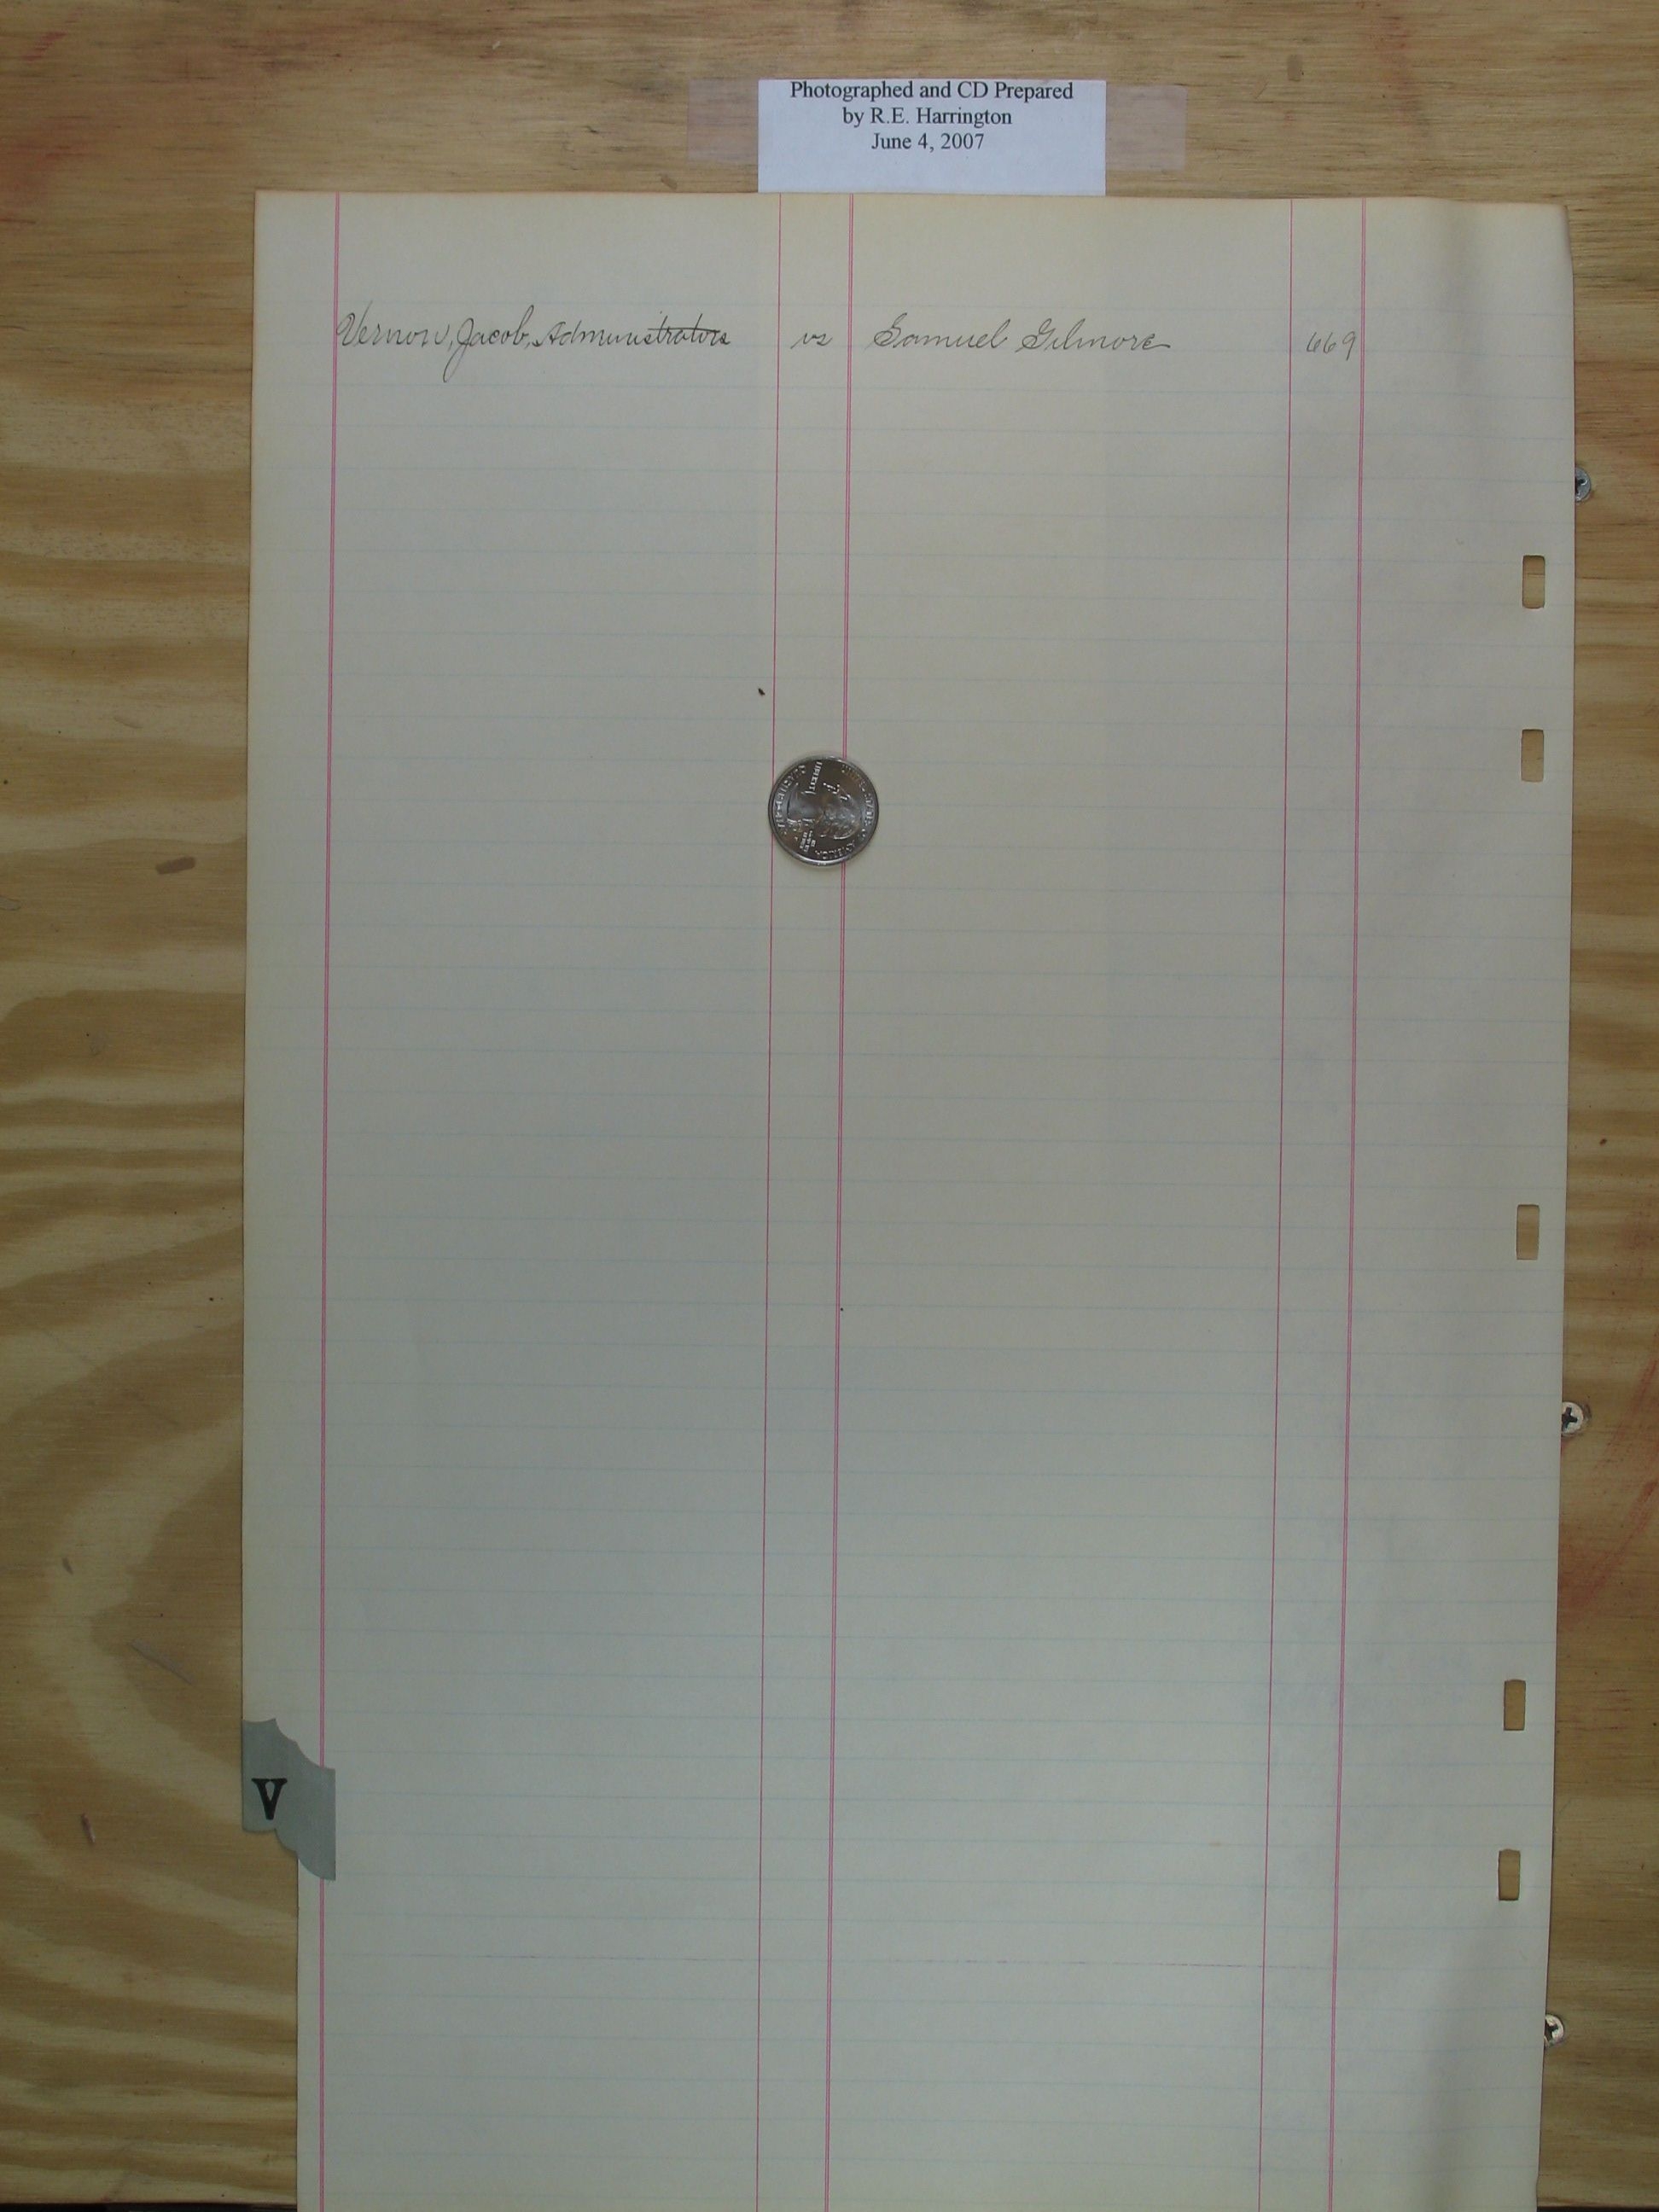 Photographed and CD Prepared
by R.E. Harrington
June 4, 2007
Vernon, Jacob, Administrators vs Samuel Gilmore 669
V